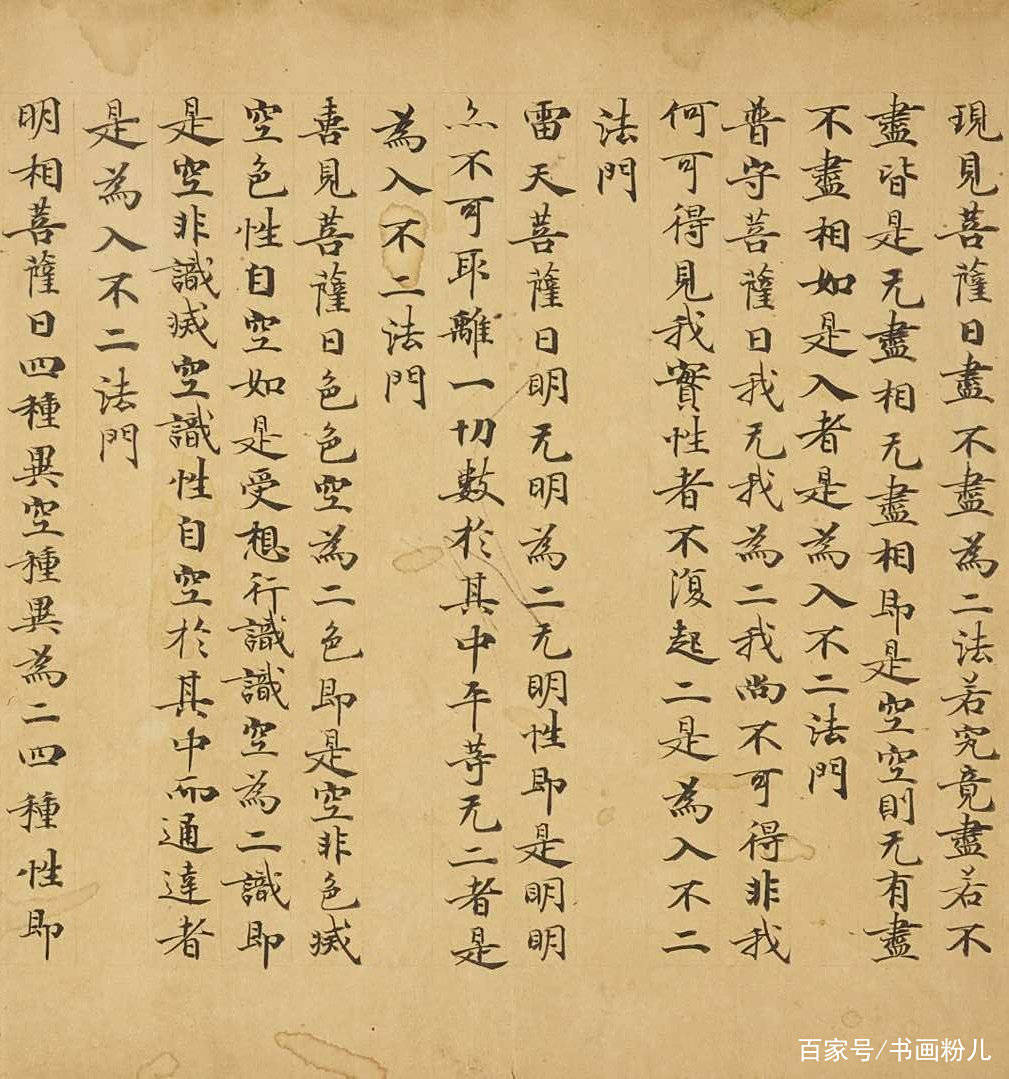 現見菩薩曰盡不盡為二法若究竟盡若不
盡皆是无盡相无盡相即是空空則无有盡
不盡相如是入者是為入不二法門
普守菩薩曰我无我為二我尚不可得非我
何可得見我實性者不復起二是為入不二
法門
雷天菩薩曰明无明為二无明性即是明明
亦不可取離一切數於其中平等无二者是
為入不二法門
喜見菩薩曰色色空為二色即是空非色滅
空色性自空如是受想行識識空為二識即
是空非識滅空識性自空於其中而通達者
是為入不二法門
明相菩薩曰四種異空種異為二四種性即
百家号/书画粉儿